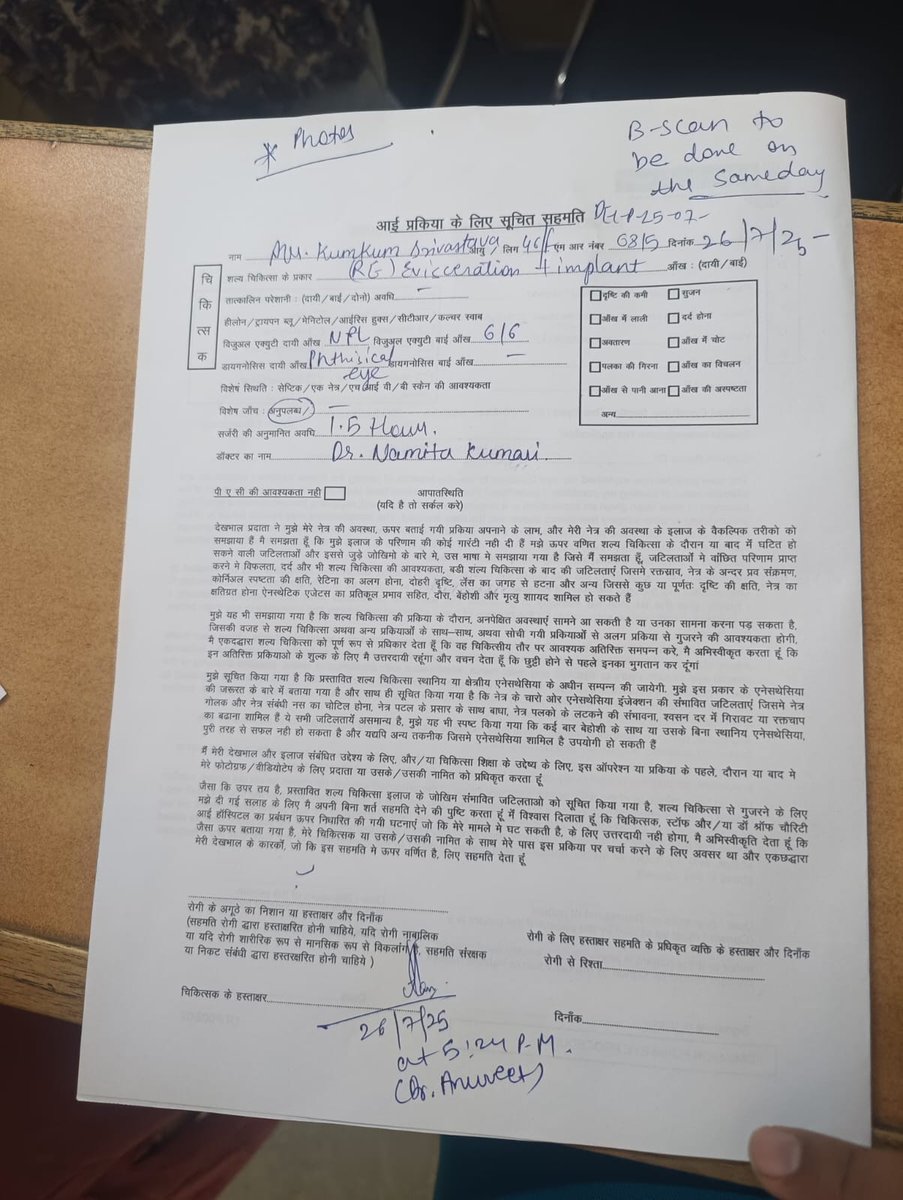 * Photos
B-scan to
be done on
the Sameday
आई प्रकिया के लिए सूचित सहमति
नाम Mrs. Kumkum Srivastava आयु / लिग 46/f एम आर नंबर 6815 दिनांक 26/7/25
चिकित्सक
शल्य चिकित्सा के प्रकार (RE) Evicceration + implant आँख : (दायी / बाई)
तात्कालिन परेशानी : (दायी / बाई / दोनो) अवधि –
हीलोन / ट्रायपन ब्लू / मेनिटोल / आईरिस हुक्स / सीटीआर / कल्चर स्वाब
विजुअल एक्युटी दायी आँख NPL विजुअल एक्युटी बाई आँख 6/6
डायगनोसिस दायी आँख Phthisical eye डायगनोसिस बाई आँख –
विशेष सिथति : सेप्टिक / एक नेत्र / एच आई वी / बी स्केन की आवश्यकता
विशेष जाँच : अनुपलब्ध / –
सर्जरी की अनुमानित अवधि 1.5 Hour.
डॉक्टर का नाम Dr. Namita Kumari.
दृष्टि की कमी गुजन
आँख में लाली दर्द होना
अवतारण आँख में चोट
पलका की गिरना आँख का विचलन
आँख से पानी आना आँख की अस्पष्टता
अन्य
पी ए सी की आवश्यकता नही आपातस्थिति
(यदि है तो सर्कल करे)
देखभाल प्रदाता ने मुझे मेरे नेत्र की अवस्था, ऊपर बताई गयी प्रकिया अपनाने के लाभ, और मेरी नेत्र की अवस्था के इलाज के वैकल्पिक तरीको को
समझाया हैं मै समझता हूँ कि मुझे इलाज के परिणाम की कोई गारंटी नही दी हैं मझे ऊपर वणित शल्य चिकित्सा के दौरान या बाद में घटित हो
सकने वाली जटिलताओं और इससे जुड़े जोखिमो के बारे मे, उस भाषा मे समझाया गया है जिसे मैं समझता हूँ, जटिलताओं मे वांछित परिणाम प्राप्त
करने मे विफलता, दर्द और भी शल्य चिकित्सा की आवश्यकता, बडी शल्य चिकित्सा के बाद की जटिलताएं जिसमे रक्तस्राव, नेत्र के अन्दर प्रव संक्रमण,
कोर्निअल स्पष्टता की क्षति, रेटिना का अलग होना, दोहरी दृष्टि, लेंस का जगह से हटना और अन्य जिससे कुछ या पूर्णतः दृष्टि की क्षति, नेत्र का
क्षतिग्रत होना ऐनस्थेटिक एजेटस का प्रतिकूल प्रभाव सहित, दौरा, बेहोशी और मृत्यु शाायद शामिल हो सकते हैं
मुझे यह भी समझाया गया है कि शल्य चिकित्सा की प्रकिया के दौरान, अनपेक्षित अवस्थाएं सामने आ सकती है या उनका सामना करना पड़ सकता है,
जिसकी वजह से शल्य चिकित्सा अथवा अन्य प्रकियाओं के साथ–साथ, अथवा सोची गयी प्रकियाओं से अलग प्रकिया से गुजरने की आवश्यकता होगी,
मै एकदद्वारा शल्य चिकित्सा को पूर्ण रूप से प्रधिकार देता हूँ कि वह चिकित्सीय तौर पर आवश्यक अतिरिक्त समपन्न करे, मै अभिस्वीकृत करता हूं कि
इन अतिरिक्त प्रकियाओ के शुल्क के लिए मै उत्तरदायी रहूंगा और वचन देता हूँ कि छुट्टी होने से पहले इनका भुगतान कर दूंगां
मुझे सूचित किया गया है कि प्रस्तावित शल्य चिकित्सा स्थानिय या क्षेत्रीय एनेसथेसिया के अधीन सम्पन्न की जायेगी. मुझे इस प्रकार के एनेसथेसिया
की जरूरत के बारे में बताया गया है और साथ ही सूचित किया गया है कि नेत्र के चारो ओर ऐनेसथेसिया इंजेक्शन की संभावित जटिलताएं जिसमे नेत्र
गोलक और नेत्र संबंधी नस का चोटिल होना, नेत्र पटल के प्रसार के साथ बाधा, नेत्र पलको के लटकने की संभावना, श्वसन दर में गिरावट या रक्तचाप
का बढाना शामिल हैं ये सभी जटिलतायें असमान्य है, मुझे यह भी स्पष्ट किया गया कि कई बार बेहोशी के साथ या उसके बिना स्थानिय एनेसथेसिया,
पुरी तरह से सफल नही हो सकता है और यद्यपि अन्य तकनीक जिसमे एनेसथेसिया शामिल है उपयोगी हो सकती हैं
मैं मेरी देखभाल और इलाज संबंधित उद्देश्य के लिए, और / या चिकित्सा शिक्षा के उद्देष्य के लिए, इस ऑपरेश्न या प्रकिया के पहले, दौरान या बाद मे
मेरे फोटोग्रफ / वीडियोटेप के लिए प्रदाता या उसके / उसकी नामित को प्रधिकृत करता हूं
जैसा कि उपर तय है, प्रस्तावित शल्य चिकित्सा इलाज के जोखिम संभावित जटिलताओ को सूचित किया गया है, शल्य चिकित्सा से गुजरने के लिए
मझे दी गई सलाह के लिए मै अपनी बिना शर्त सहमति देने की पुष्टि करता हूं में विश्वास दिलाता हूं कि चिकित्सक, स्टॉफ और / या डॉ श्रॉफ चौरिटी
आई हॉस्पिटल का प्रबंधन ऊपर निधारित की गयी घटनाएं जो कि मेरे मामले मे घट सकती है, के लिए उत्तरदायी नही होगा, मै अभिस्वीकृति देता हूँ कि
जैसा ऊपर बताया गया है, मेरे चिकित्सक या उसके / उसकी नामित के साथ मेरे पास इस प्रकिया पर चर्चा करने के लिए अवसर था और एकछद्वारा
मेरी देखभाल के कारकों, जो कि इस सहमति मे ऊपर वर्णित है, लिए सहमति देता हूं
रोगी के अगूठे का निशान या हस्ताक्षर और दिनाँक
(सहमति रोगी द्वारा हस्ताक्षरित होनी चाहिये, यदि रोगी नाबालिक
या यदि रोगी शारीरिक रूप से मानसिक रूप से विकलांग है, सहमति संरक्षक
या निकट संबंधी द्वारा हस्तरक्षरित होनी चाहिये )
रोगी के लिए हस्ताक्षर सहमति के प्रधिकृत व्यक्ति के हस्ताक्षर और दिनाँक
रोगी से रिश्ता
चिकित्सक के हस्ताक्षर
दिनाँक
26/7/25
at 5:24 P.M.
(Dr. Anuveet)